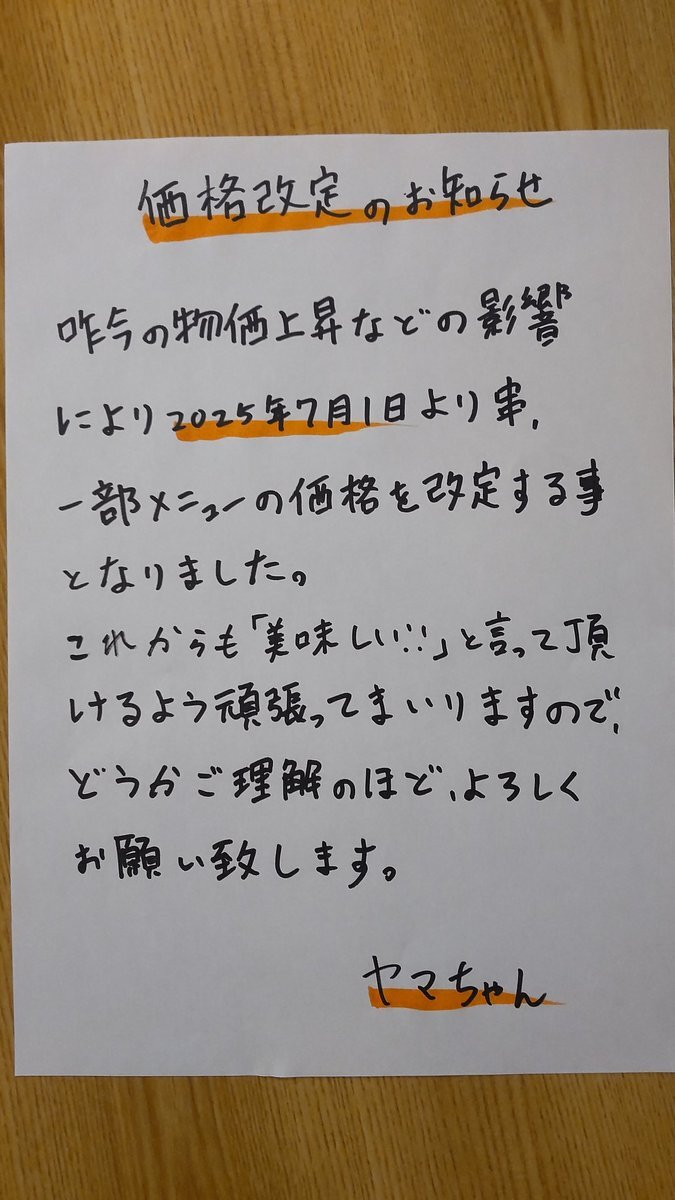 価格改定のお知らせ
昨今の物価上昇などの影響
により2025年7月1日より串、
一部メニューの価格を改定する事
となりました。
これからも「美味しい!!」と言って頂
けるよう頑張ってまいりますので、
どうかご理解のほど、よろしく
お願い致します。
ヤマちゃん